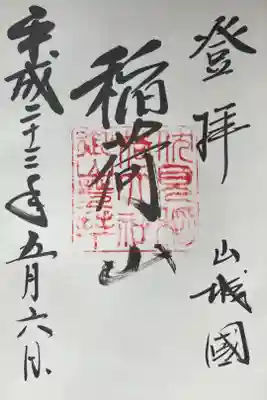 登拝 山城國
稲荷山
平成二十三年五月六日